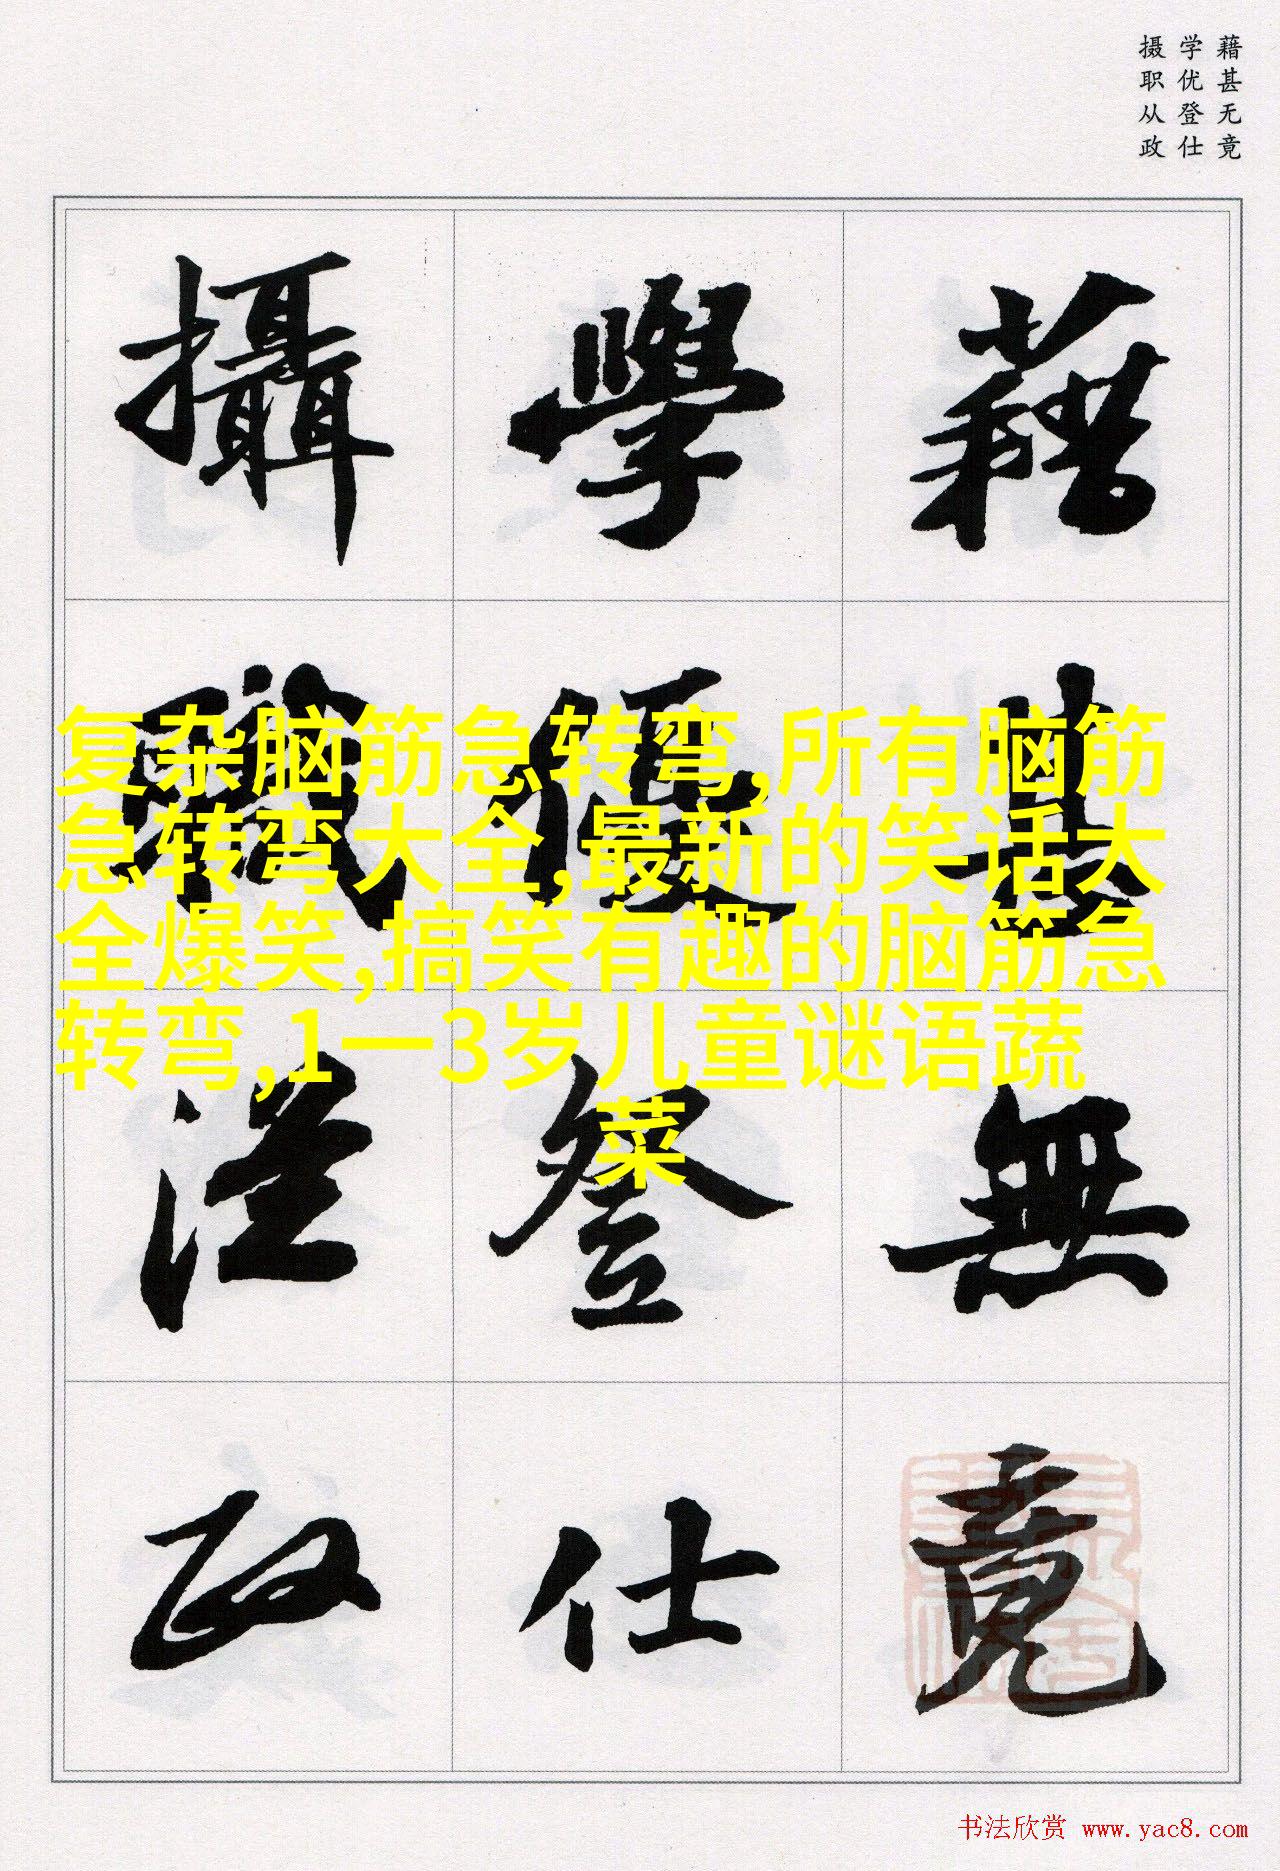 藉甚无竟
学优登仕
摄职从政
藉甚無竟
學優登仕
攝職從政
复杂脑筋急转弯,所有脑筋
急转弯大全,最新的笑话大
全爆笑,搞笑有趣的脑筋急
转弯,1一3岁儿童谜语蔬
菜
书法欣赏 www.yac8.com